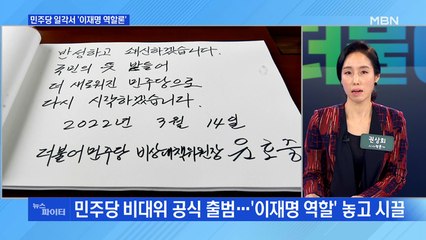 민주당 일각서 '이재명 역할론'
MBN
반성하고 쇄신하겠습니다.
국민의 뜻 받들어
더 새로워진 민주당으로
다시 시작하겠습니다.
2022년 3월 14일
더불어민주당 비상대책위원장 윤호중
권상희
뉴스
파이터
민주당 비대위 공식 출범…'이재명 역할' 놓고 시끌